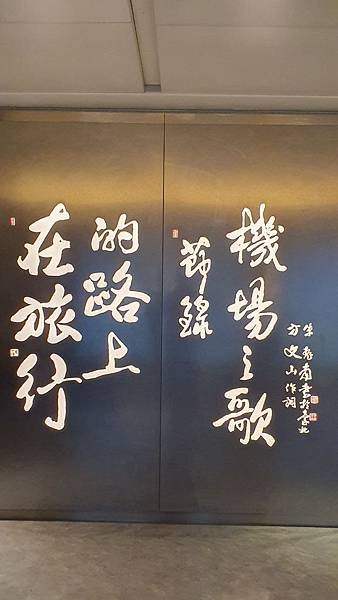 在旅行
的路上
節錄
機場之歌
方文山作詞
朱振南書於臺北